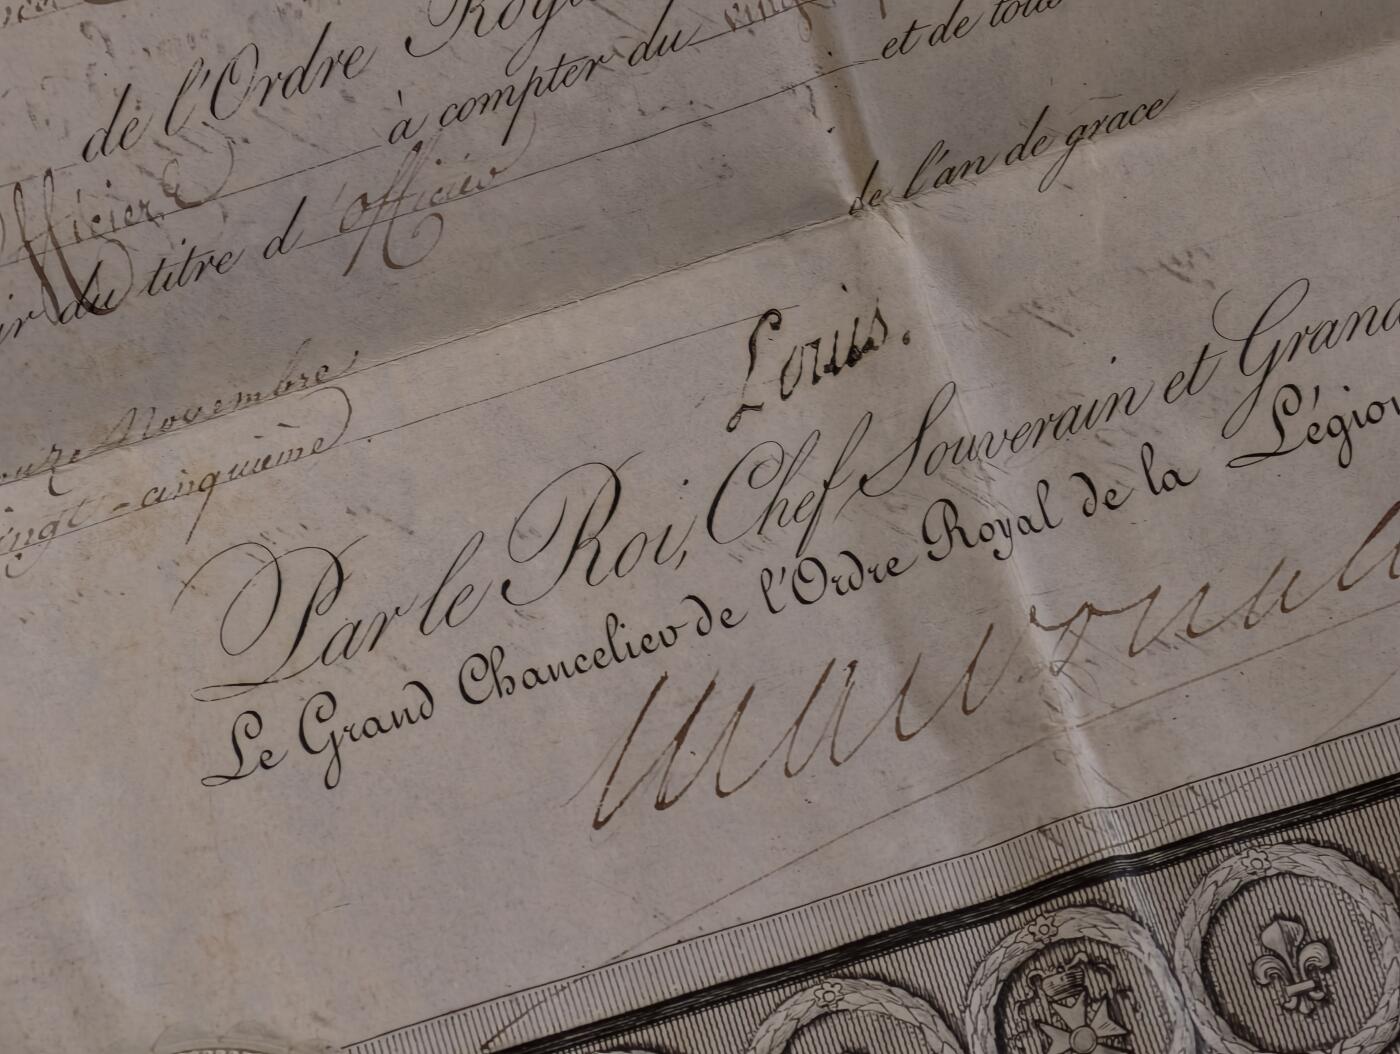 de l'Ordre Roy
Officier à compter du vingt
ir du titre d'Officier et de tous
de l'an de grace
Novembre
vingt-cinquième
Louis.
Par le Roi, Chef Souverain et Grand
Le Grand Chancelier de l'Ordre Royal de la Légion